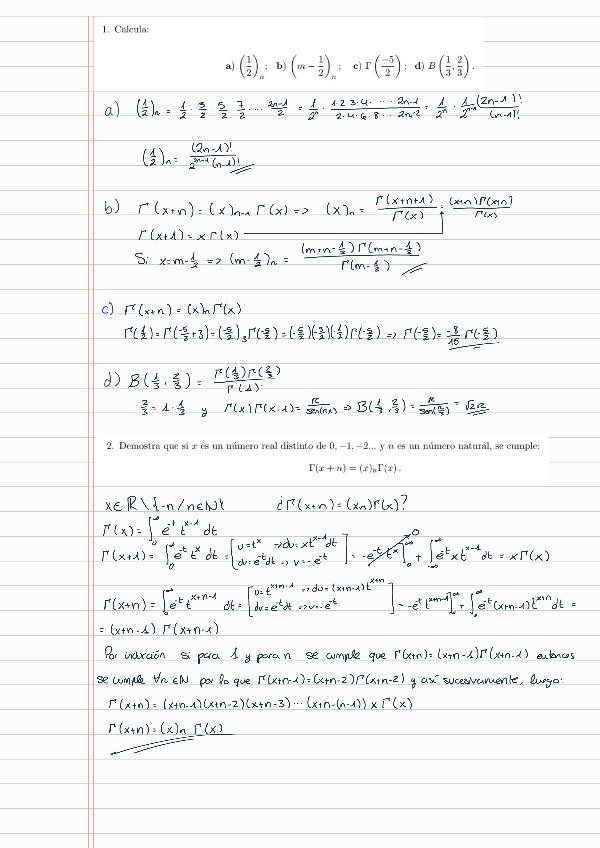 1. Calcula:
a) (1/2)_n ; b) (m − 1/2)_n ; c) Γ(−5/2) ; d) B(1/3, 2/3) .
a) (1/2)_n = 1/2 · 3/2 · 5/2 · 7/2 · ... · 2n-1/2 = 1/2^n · 1·2·3·4· ... · 2n-1 / 2·4·6·8 ... 2n-2 = 1/2^n · 1/2^{n-1} (2n-1)!/(n-1)!
(1/2)_n = (2n-1)! / 2^{2n-1} (n-1)!
b) Γ(x+n) = (x)_{n-1} Γ(x) => (x)_n = Γ(x+n+1)/Γ(x) = (x+n)Γ(x+n)/Γ(x)
Γ(x+1) = x Γ(x)
Si x = m-1/2 => (m-1/2)_n = (m+n-1/2) Γ(m+n-1/2) / Γ(m-1/2)
c) Γ(x+n) = (x)_n Γ(x)
Γ(1/2) = Γ(-5/2+3) = (-5/2)_3 Γ(-5/2) = (-5/2)(-3/2)(1/2) Γ(-5/2) => Γ(-5/2) = -8/15 Γ(-5/2)
d) B(1/3, 2/3) = Γ(1/3)Γ(2/3) / Γ(1)
2/3 = 1-1/3 y Γ(x)Γ(x-1) = π/sen(πx) => B(1/3, 2/3) = π/sen(π/3) = √2π
2. Demostra que si x es un número real distinto de 0, −1, −2... y n es un número natural, se cumple:
Γ(x + n) = (x)_n Γ(x) .
x ∈ ℝ \ {-n / n ∈ ℕ} ¿Γ(x+n) = (x_n)Γ(x)?
Γ(x) = ∫_0^∞ e^{-t} t^{x-1} dt
Γ(x+1) = ∫_0^∞ e^{-t} t^x dt = [u = t^x => du = x t^{x-1} dt
dv = e^{-t} dt => v = -e^{-t}] = -e^{-t} t^x ]_0^∞ + ∫_0^∞ e^{-t} x t^{x-1} dt = x Γ(x)
Γ(x+n) = ∫_0^∞ e^{-t} t^{x+n-1} dt = [u = t^{x+n-1} => du = (x+n-1) t^{x+n}
dv = e^{-t} dt => v = -e^{-t}] = -e^{-t} t^{x+n-1} ]_0^∞ + ∫_0^∞ e^{-t} (x+n-1) t^{x+n} dt =
= (x+n-1) Γ(x+n-1)
Por inducción si para 1 y para n se cumple que Γ(x+n) = (x+n-1)Γ(x+n-1) entonces
se cumple ∀n ∈ ℕ por lo que Γ(x+n-1) = (x+n-2)Γ(x+n-2) y así sucesivamente, luego:
Γ(x+n) = (x+n-1)(x+n-2)(x+n-3) ··· (x+n-(n-1)) x Γ(x)
Γ(x+n) = (x)_n Γ(x)